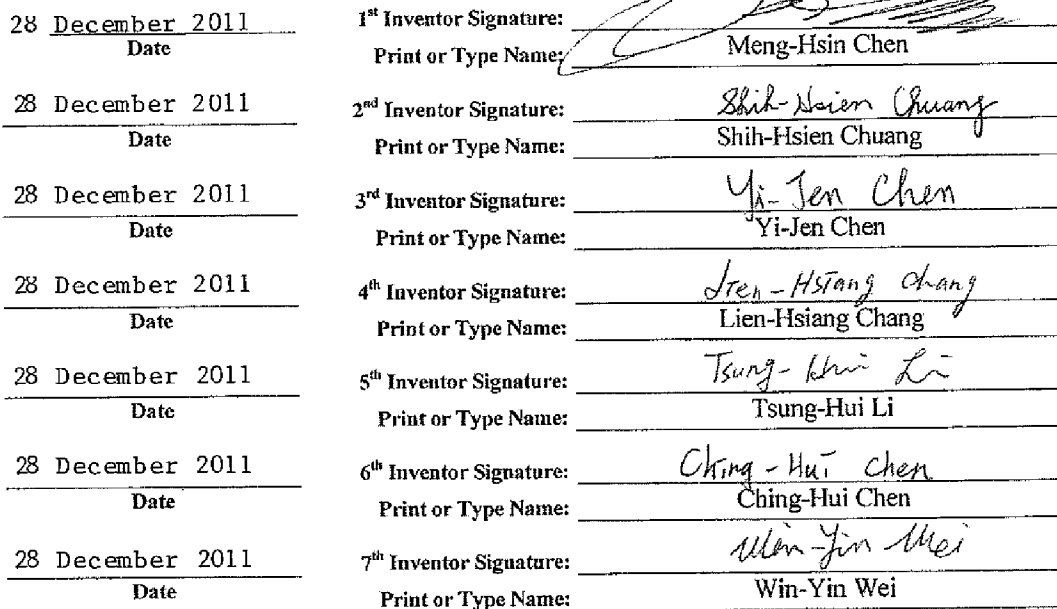 28 December 2011 1st Inventor Signature:
Date Print or Type Name: Meng-Hsin Chen
28 December 2011 2nd Inventor Signature: Shih-Hsien Chuang
Date Print or Type Name: Shih-Hsien Chuang
28 December 2011 3rd Inventor Signature: Yi-Jen Chen
Date Print or Type Name: Yi-Jen Chen
28 December 2011 4th Inventor Signature: Lien-Hsiang Chang
Date Print or Type Name: Lien-Hsiang Chang
28 December 2011 5th Inventor Signature: Tsung-Hui Li
Date Print or Type Name: Tsung-Hui Li
28 December 2011 6th Inventor Signature: Ching-Hui Chen
Date Print or Type Name: Ching-Hui Chen
28 December 2011 7th Inventor Signature: Win-Yin Wei
Date Print or Type Name: Win-Yin Wei